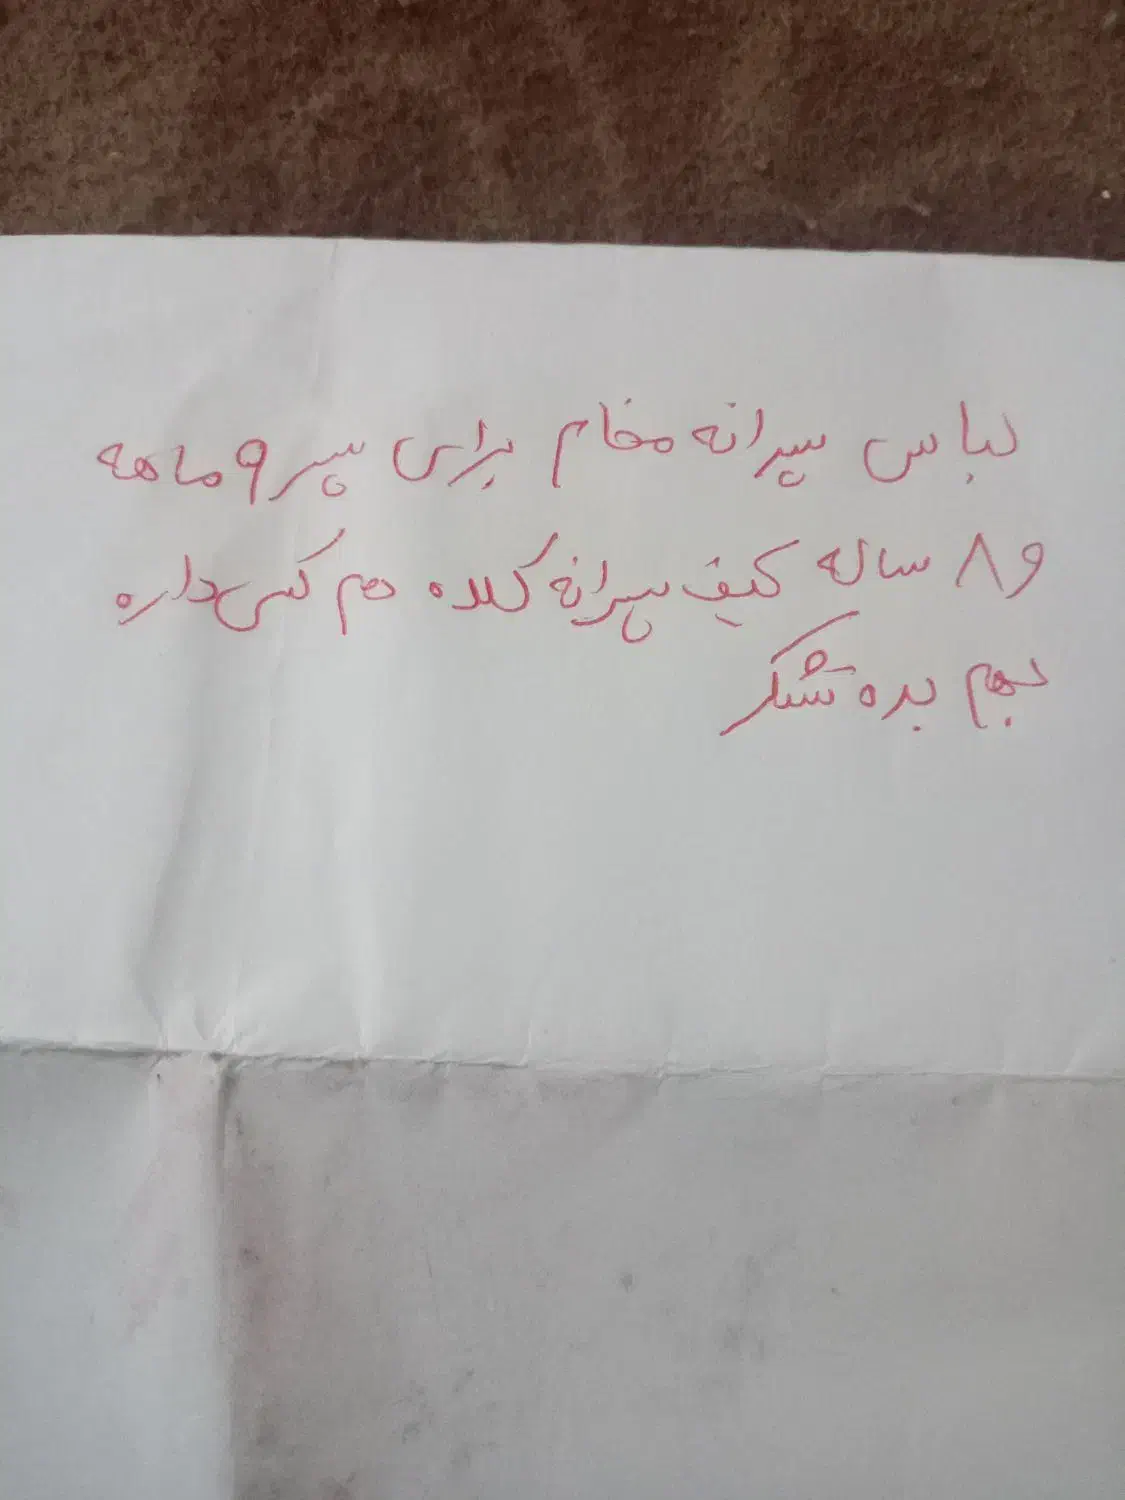 لباس پسرانه مخام برای پسر ۹ ماهه
و ۸ ساله کیف پسرانه کلاه هم کسی داره
بهم بده تشکر